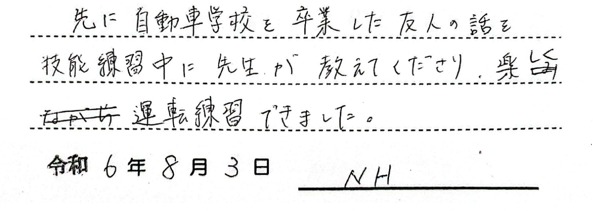 先に自動車学校を卒業した友人の話を
技能練習中に先生が教えてくださり、楽しく
運転練習できました。
令和 6 年 8 月 3 日 NH